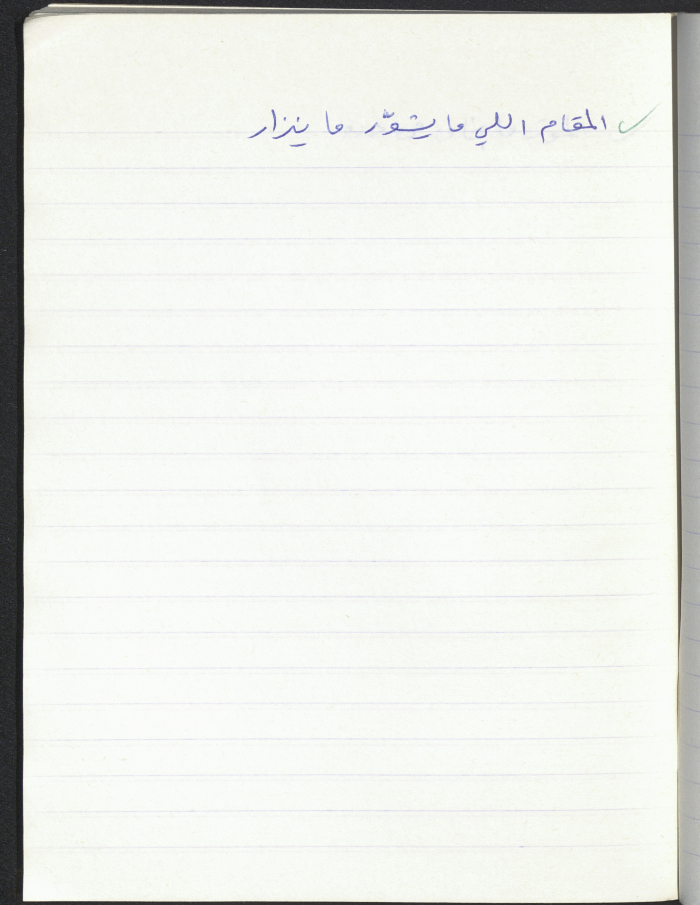 المقام اللي ما يشوّر ما ينزار